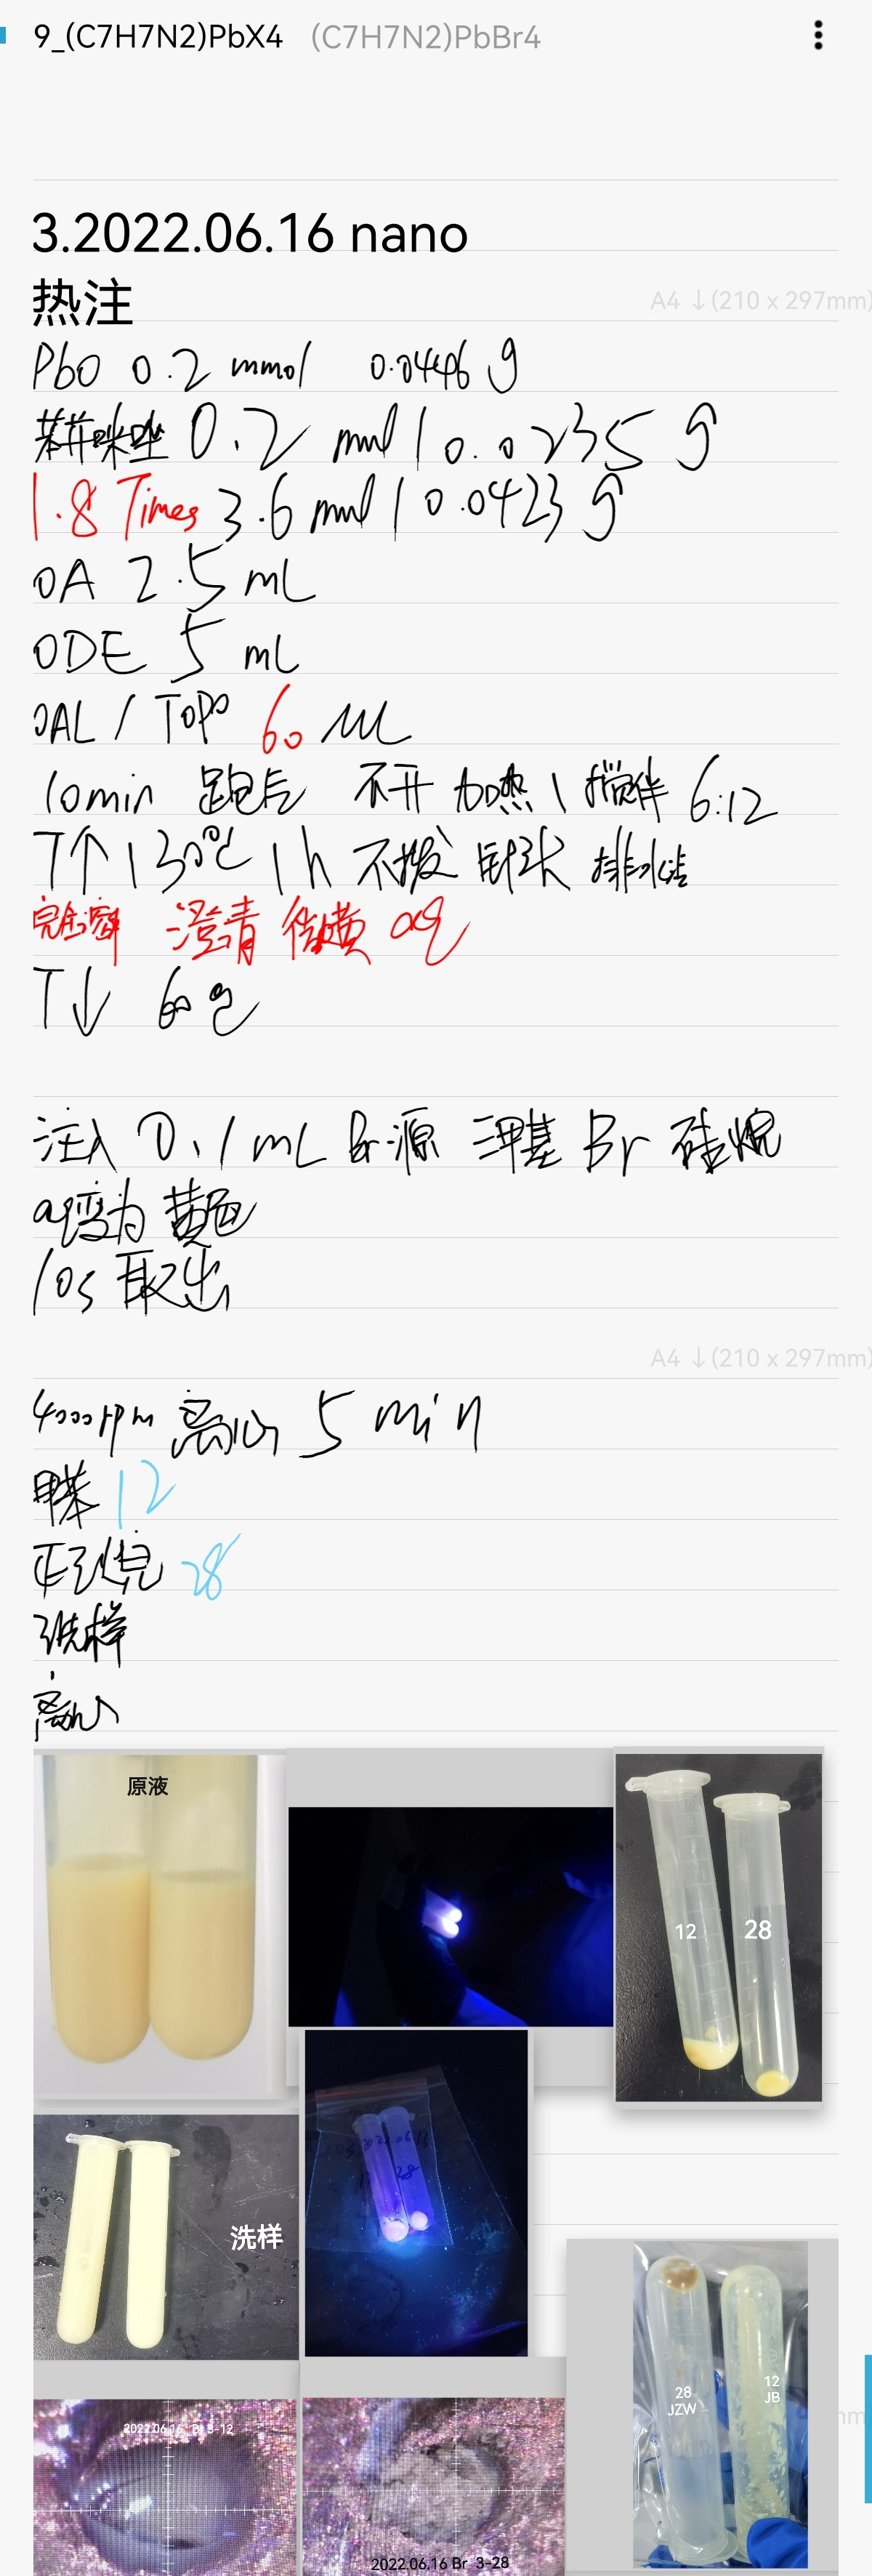 9_(C7H7N2)PbX4 (C7H7N2)PbBr4
3.2022.06.16 nano
热注
A4 ↓(210 x 297mm)
PbO 0.2 mmol 0.0446 g
苯并咪唑 0.2 mmol 0.0235 g
1.8 Times 3.6 mmol 0.0423 g
OA 2.5 mL
ODE 5 mL
OAL / TOPO 60 uL
10min 跑后 不开加热 \ 搅拌 6:12
T↑ 130℃ 1h 不拨 针头 排
完全溶解 澄清 微黄 aq
T↓ 60℃
注入 0.1mL Br源 三甲基 Br 硅烷
aq变为黄色
10s 取出
A4 ↓(210 x 297mm)
4000rpm 离心 5 min
甲苯 12
正己烷 28
洗样
离心
原液
12 28
洗样
2022.06 16
28
28
JZW
12
JB
2022.06.16 Br 3-12
2022.06.16 Br 3-28